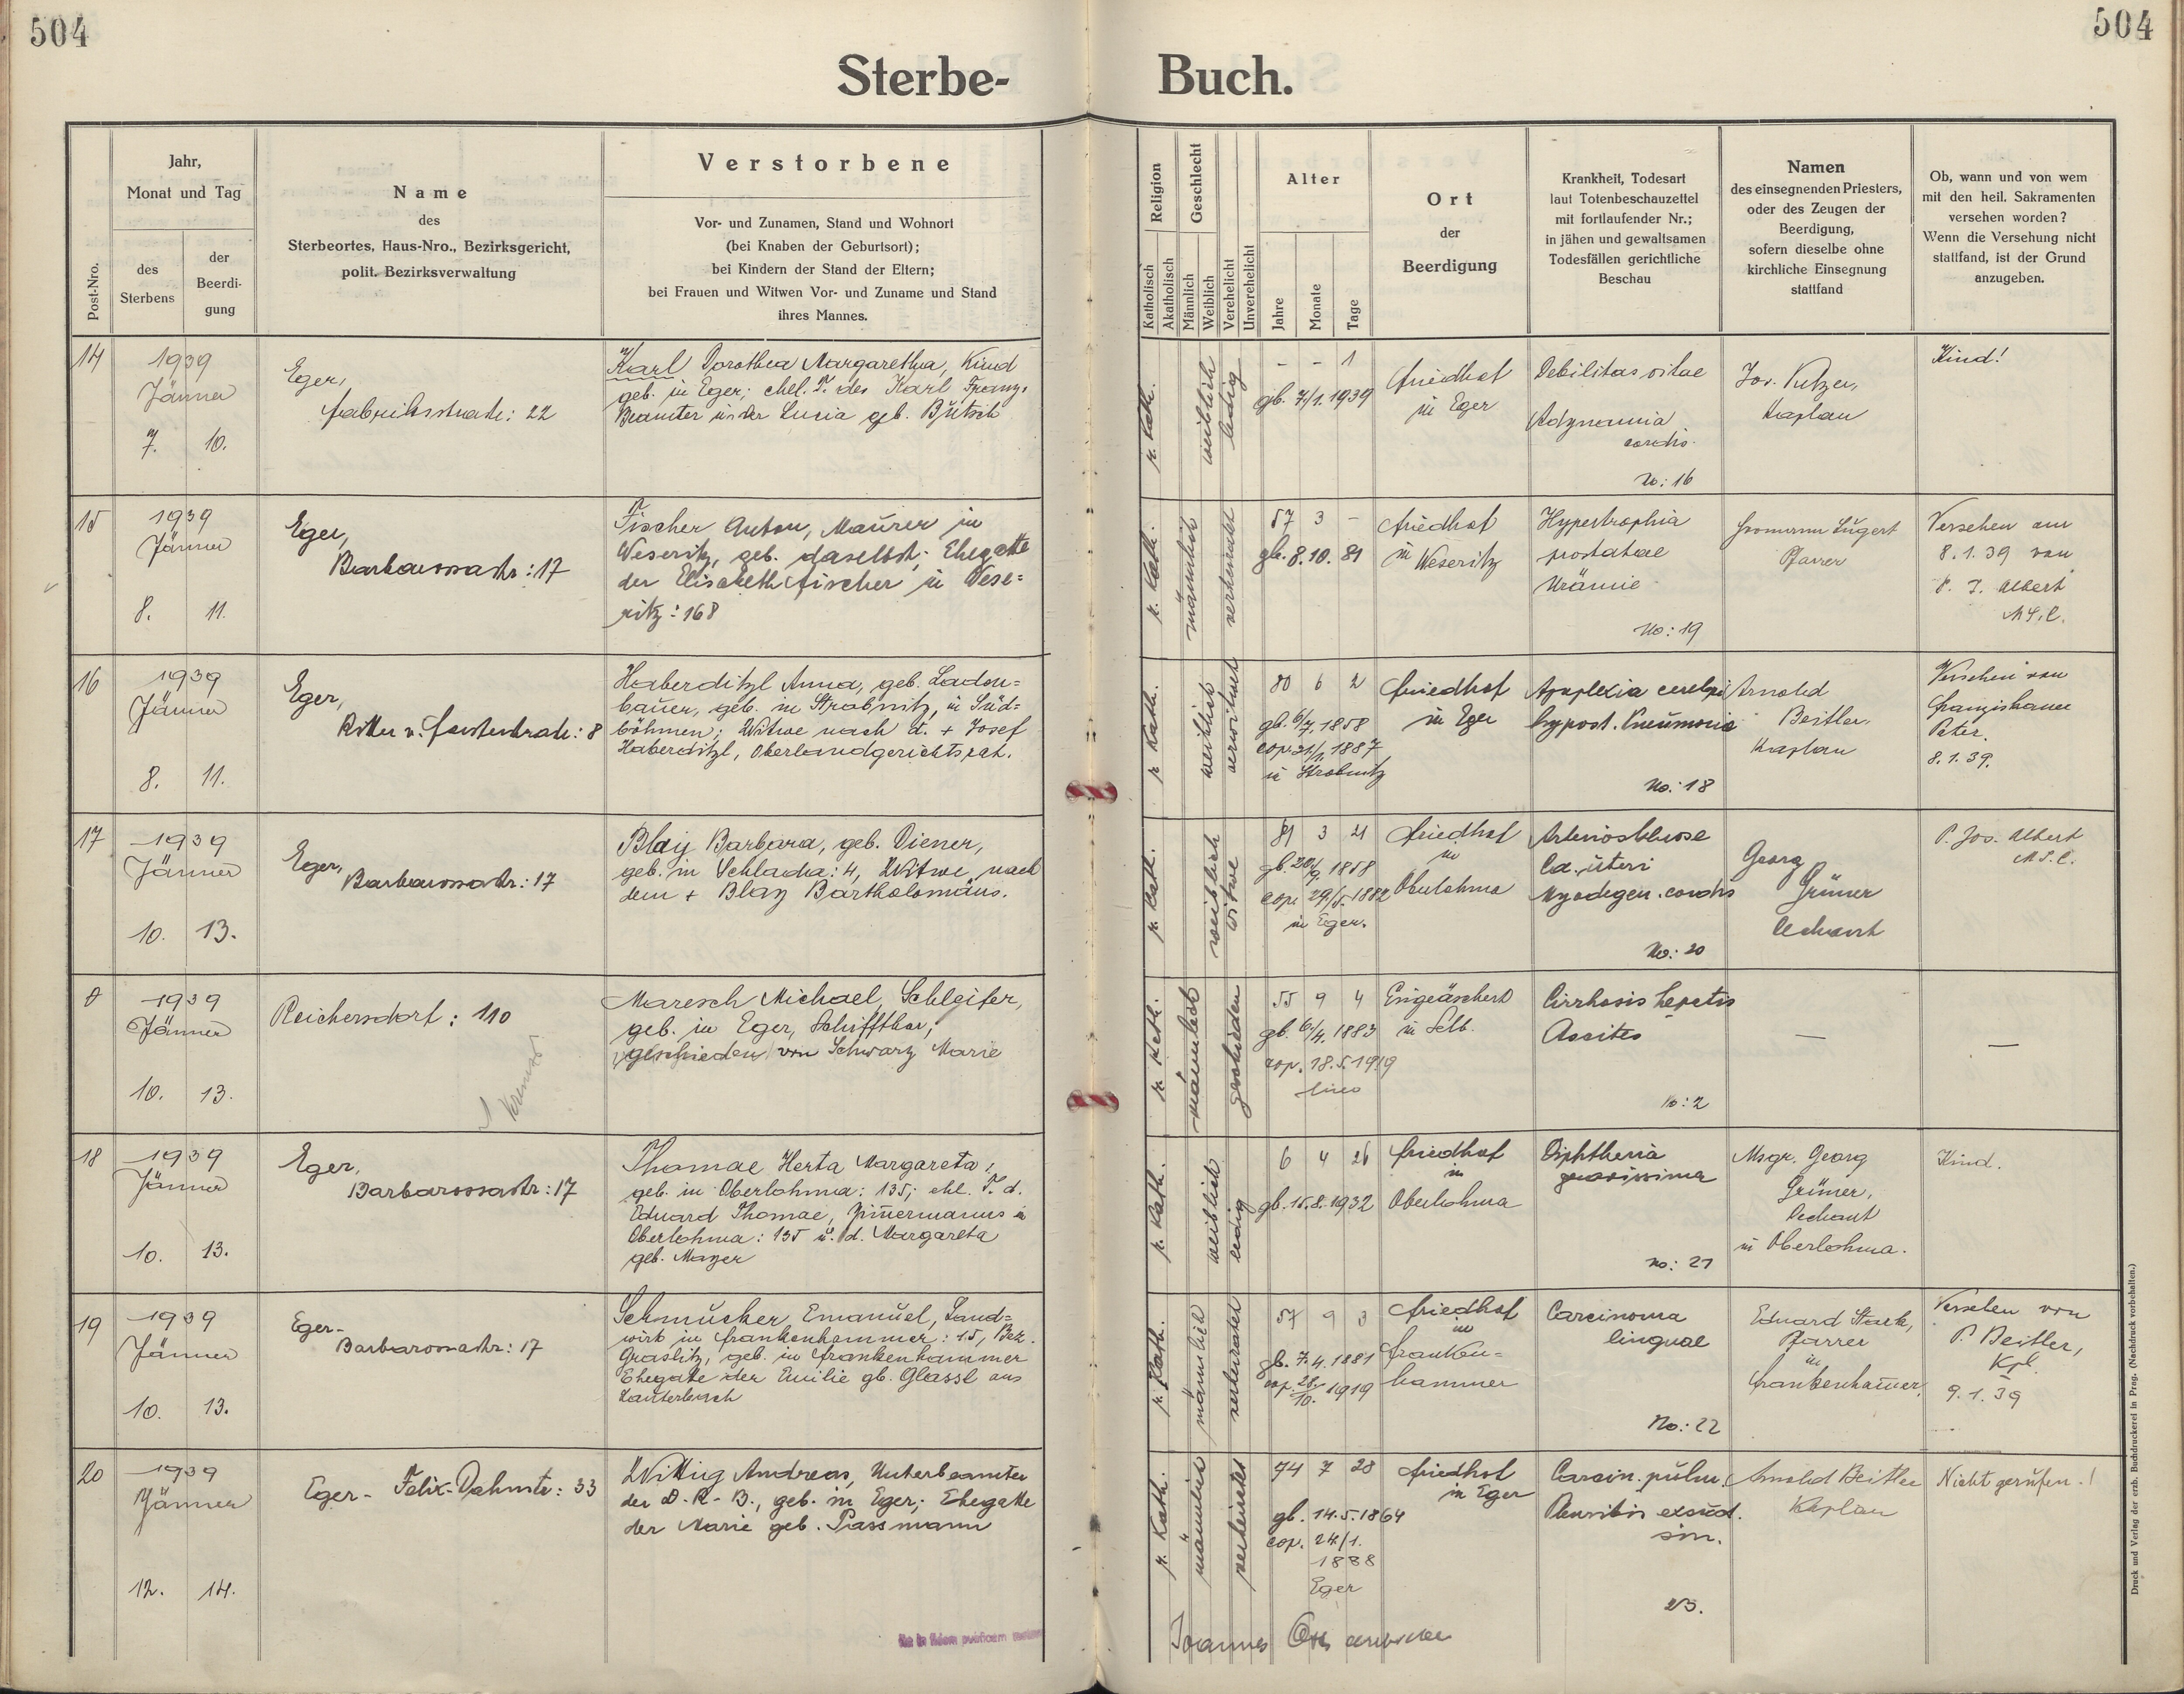 504
504
Sterbe- Buch.
Post-Nro.
Jahr,
Monat und Tag
des
Sterbens
der
Beerdi-
gung
Name
des
Sterbeortes, Haus-Nro., Bezirksgericht,
polit. Bezirksverwaltung
Verstorbene
Vor- und Zunamen, Stand und Wohnort
(bei Knaben der Geburtsort);
bei Kindern der Stand der Eltern;
bei Frauen und Witwen Vor- und Zuname und Stand
ihres Mannes.
Religion
Katholisch
Akatholisch
Geschlecht
Männlich
Weiblich
Verehelicht
Unverehelicht
Alter
Jahre
Monate
Tage
Ort
der
Beerdigung
Krankheit, Todesart
laut Totenbeschauzettel
mit fortlaufender Nr.;
in jähen und gewaltsamen
Todesfällen gerichtliche
Beschau
Namen
des einsegnenden Priesters,
oder des Zeugen der
Beerdigung,
sofern dieselbe ohne
kirchliche Einsegnung
stattfand
Ob, wann und von wem
mit den heil. Sakramenten
versehen worden?
Wenn die Versehung nicht
stattfand, ist der Grund
anzugeben.
14
1939
Jänner
7. 10.
Eger,
Fabriksstraße: 22
Karl Dorothea Margaretha, Kind
geb. in Eger; ehel. T. des Karl Franz,
Beamter u. der Lucia geb. Bütsch
r. kath.
weiblich
ledig
- - 1
gb. 7/1. 1939
Friedhof
in Eger
Debilitas vitae
Adynamia
cordis.
No: 16
Jos. Kutzer,
Kaplan
Kind!
15
1939
Jänner
8. 11.
Eger,
Barbarossastr: 17
Fischer Anton, Maurer in
Weseritz, geb. daselbst; Ehegatte
der Elisabeth Fischer in Wese=
ritz: 168
r. kath.
männlich
verheiratet
57 3 -
gb. 8. 10. 81
Friedhof
in Weseritz
Hypertrophia
prostatae
Urämie
No: 19
Lugert
Pfarrer
Versehen am
8. 1. 39 von
P. J. Albert
M.S.C.
16
1939
Jänner
8. 11.
Eger,
Ritter v. Forsterstraße: 8
Haberditzl Anna, geb. Ladon=
bauer, geb. in Strobnitz, in Süd=
böhmen; Witwe nach d. + Josef
Haberditzl, Oberlandgerichtsrat.
r. kath.
weiblich
verwitwet
80 6 2
gb. 6/7. 1858
cop. 31/1. 1887
in Strobnitz
Friedhof
in Eger
Apoplexia cerebri
hypost. Pneumonie
No: 18
Arnold
Beitler,
Kaplan
Versehen von
Franziskaner
Pater.
8. 1. 39.
17
1939
Jänner
10. 13.
Eger,
Barbarossastr: 17
Blay Barbara, geb. Diener,
geb. in Schlada: 4, Witwe nach
dem + Blay Bartholomäus.
r. kath.
weiblich
Witwe
81 3 21
gb. 20/9. 1858
cop. 29/5. 1882
in Eger.
Friedhof
in
Oberlohma
Arteriosklerose
Ca. uteri
Myodegen. cordis
No: 20
Georg
Grüner
Dechant
P. Jos. Albert
M.S.C.
0
1939
Jänner
10. 13.
Reichersdorf: 110
Maresch Michael, Schleifer,
geb. in Eger, Schifftor;
geschieden von Schwarz Marie
r. kath.
männlich
geschieden
55 9 4
gb. 6/4. 1883
cop. 18. 5. 1919
Eingeäschert
in Selb.
Cirrhosis hepatis
Ascites
No: 2
—
—
18
1939
Jänner
10. 13.
Eger,
Barbarossastr: 17
Thomae Herta Margareta,
geb. in Oberlohma: 135; ehl. T. d.
Eduard Thomae, Zimmermanns in
Oberlohma: 135 u. d. Margareta
geb. Mayer
r. kath.
weiblich
ledig
6 4 26
gb. 15. 8. 1932
Friedhof
in
Oberlohma
Diphtheria
gravissima
No: 21
Msgr. Georg
Grüner,
Dechant
in Oberlohma.
Kind.
19
1939
Jänner
10. 13.
Eger-
Barbarossastr: 17
Schmucker Emanuel, Land=
wirt in Frankenhammer: 15, Bez.
Graslitz, geb. in Frankenhammer
Ehegatte der Emilie gb. Glassl aus
Lauterbach
r. kath.
männlich
verheiratet
57 9 3
gb. 7. 4. 1881
cop. 28./10. 1919
Friedhof
in
Franken=
hammer
Carcinoma
linguae
No: 22
Eduard Stark,
Pfarrer
in
Frankenhammer.
Versehen von
P. Beitler,
Kpl.
9. 1. 39
20
1939
Jänner
12. 14.
Eger- Felix-Dahnstr: 33
Wittig Andreas, Unterbeamter
der D.-R.-B., geb. in Eger; Ehegatte
der Marie geb. Passmann
r. kath.
männlich
verheiratet
74 7 28
gb. 14. 5. 1864
cop. 24/1.
1888
Eger
Friedhof
in Eger
Carcin. pulm.
Pleuritis exsud.
sin.
23.
Arnold Beitler
Kaplan
Nicht gerufen.!
Joannes
Druck und Verlag der erzb. Buchdruckerei in Prag. (Nachdruck vorbehalten.)